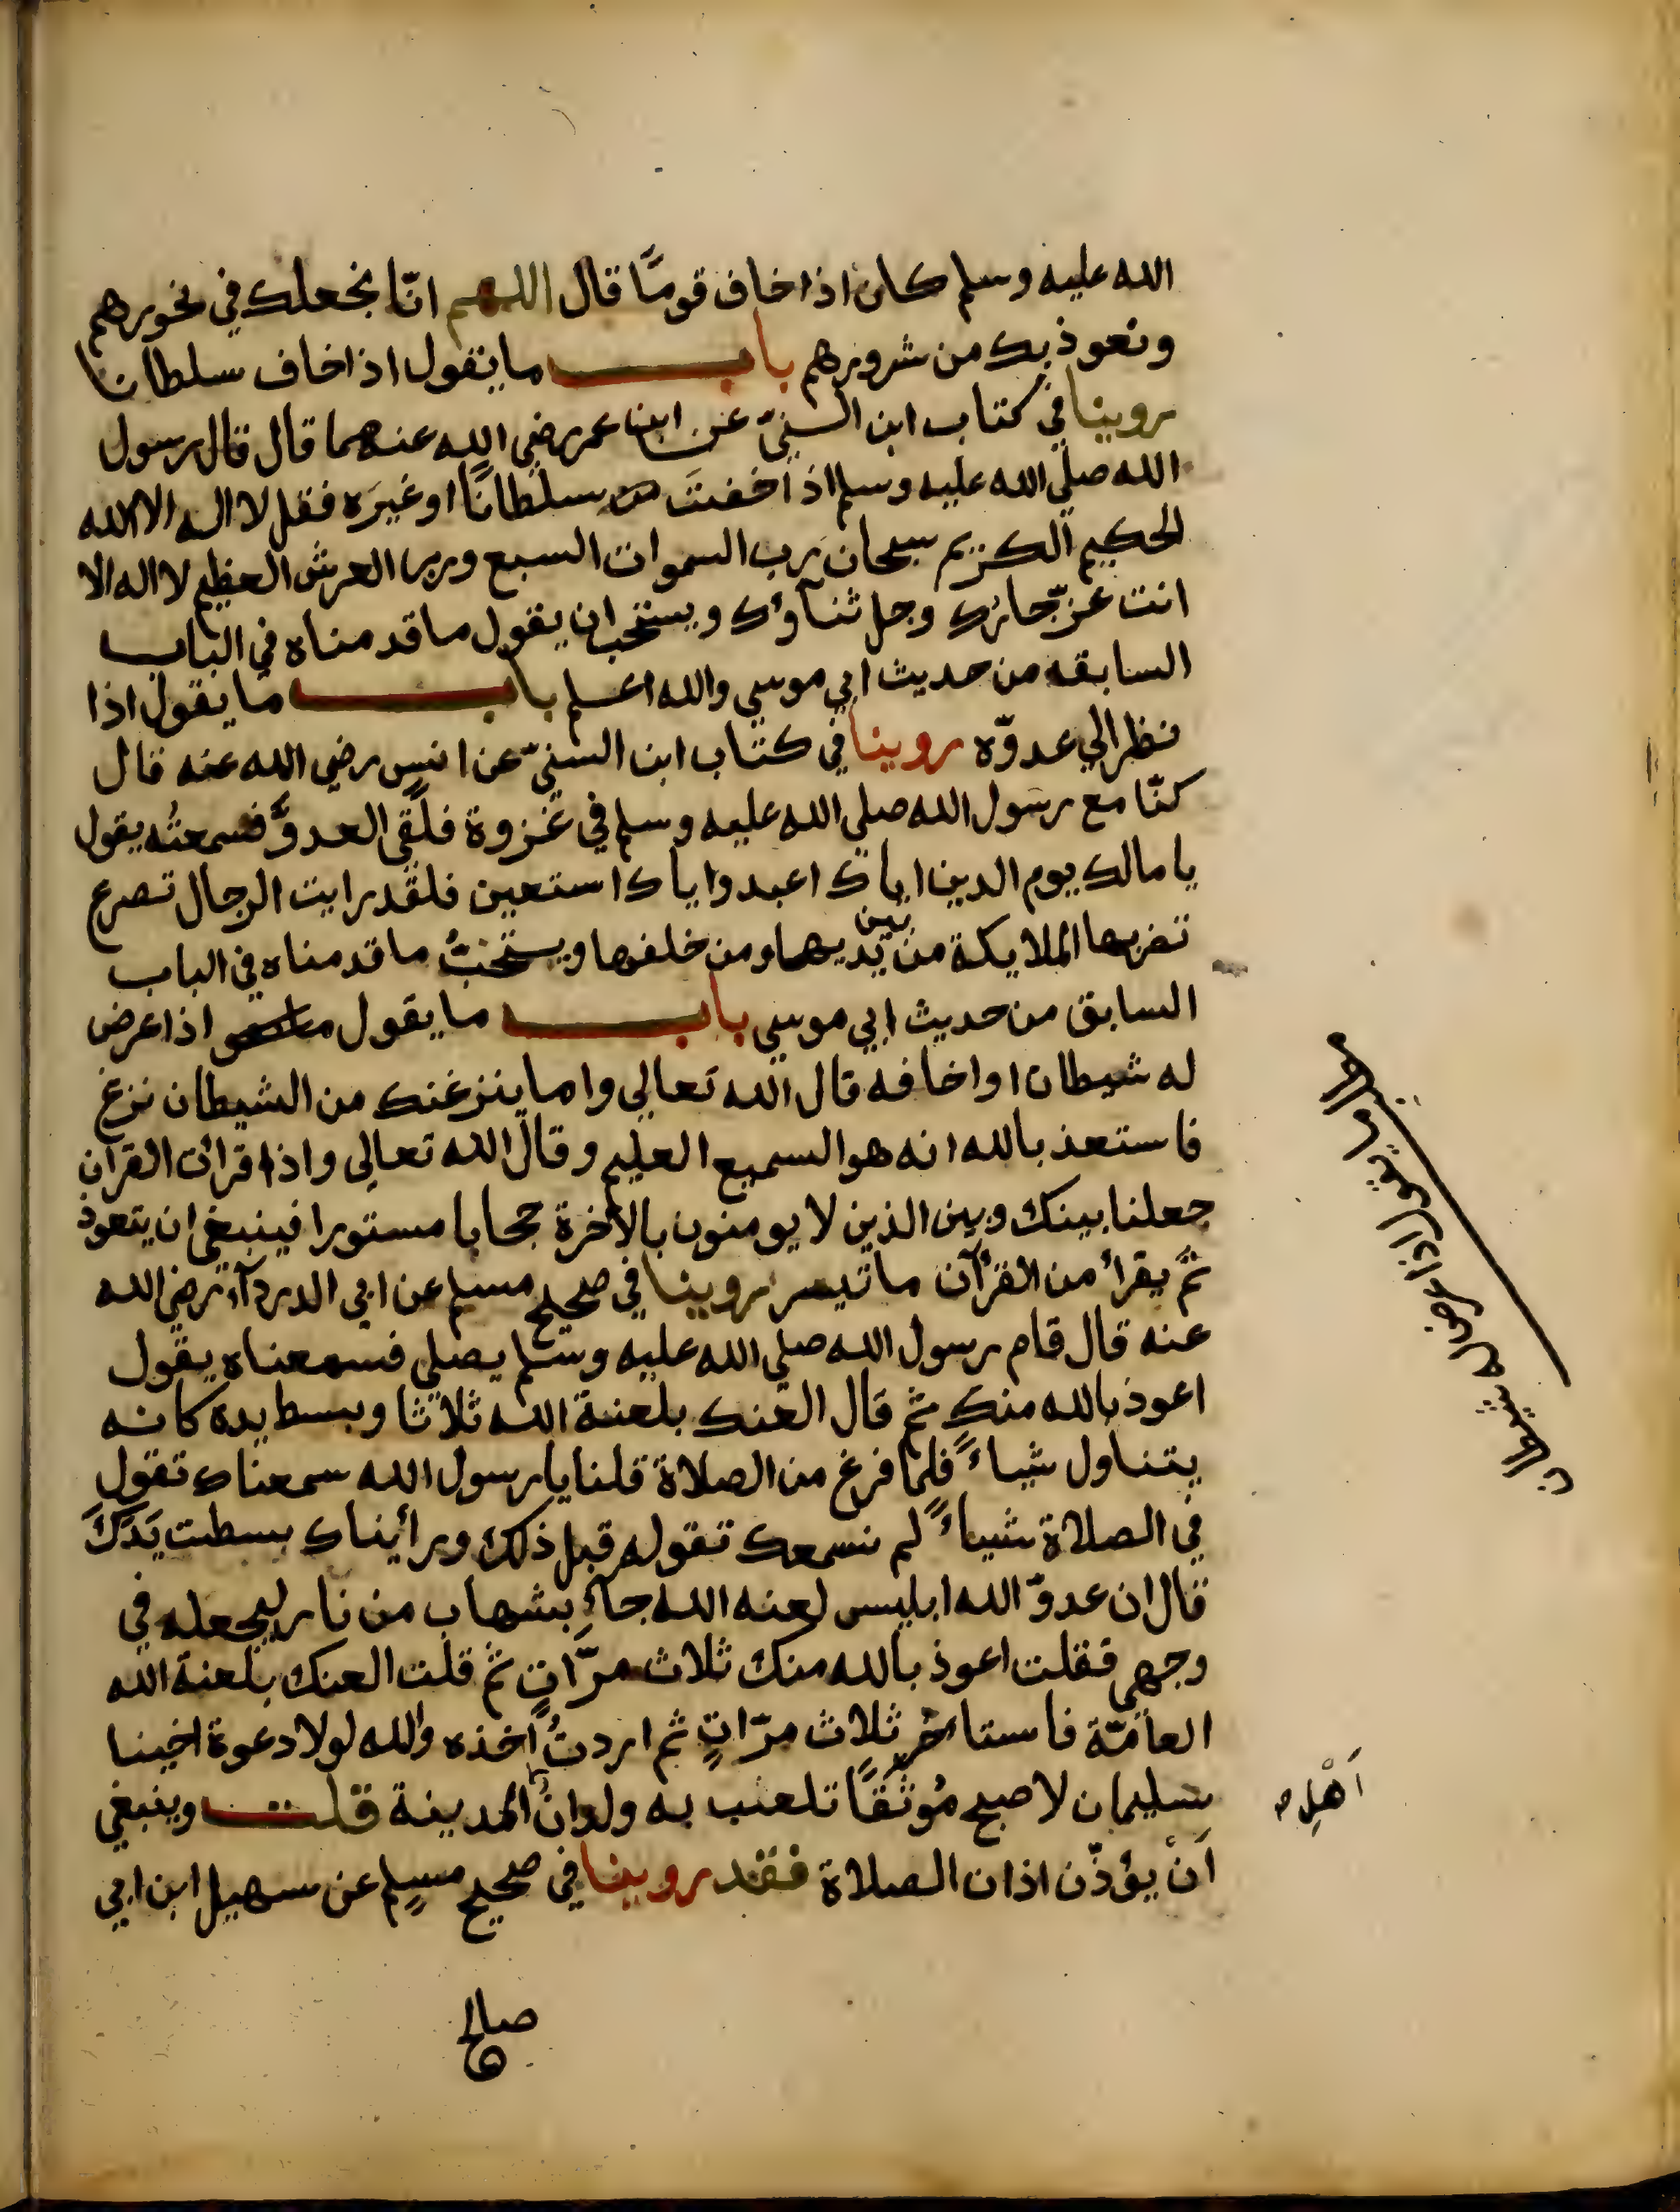 الله عليه وسلم كان اذا خاف قومًا قال اللهم انّا نجعلك في نحورهم
ونعوذ بك من شرورهم باب ما يقول اذا خاف سلطانا
روينا في كتاب ابن السنيّ عن ابن عمر رضي الله عنهما قال قال رسول
الله صلي الله عليه وسلم اذا خفتَ سلطانًا او غيرَه فقل لا اله الا الله
الحكيم الكريم سبحان رب السموات السبع ورب العرش العظيم لا اله الا
انت عزّ جارك وجل ثنآؤك ويستحب ان يقول ما قدمناه في الباب
السابقه من حديث ابي موسي والله اعلم باب ما يقول اذا
نظر الي عدوّه روينا في كتاب ابن السنيّ عن انس رضي الله عنه قال
كنّا مع رسول الله صلي الله عليه وسلم في غزوة فلقي العدوَّ فسمعتُه يقول
يا مالك يوم الدين اياك اعبد واياك استعين فلقد رايت الرجال تصرع
تضربها الملايكة من بين يديها ومن خلفها ويستحبُّ ما قدمناه في الباب
السابق من حديث ابي موسي باب ما يقول اذا عرض
له شيطان او اخافه قال الله تعالي واما ينزغنك من الشيطان نزغ
فاستعذ بالله انه هو السميع العليم وقال الله تعالي واذا قرأت القران
جعلنا بينك وبين الذين لا يومنون بالاخرة حجابا مستورا فينبغي ان يتعوذ
ثمَّ يقرأ من القرآن ما تيسر روينا في صحيح مسلم عن ابي الدردآء رضي الله
عنه قال قام رسول الله صلي الله عليه وسلم يصلي فسمعناه يقول
اعوذ بالله منك ثم قال العنك بلعنة الله ثلاثا وبسط يده كانه
يتناول شياءً فلما فرغ من الصلاة قلنا يا رسول الله سمعناك تقول
في الصلاة شياءً لم نسمعك تقوله قبل ذلك ورأيناك بسطت يَدَكَ
قال ان عدوّ الله ابليس لعنه الله جآء بشهاب من نار ليجعله في
وجهي فقلت اعوذ بالله منك ثلاث مرّاتٍ ثم قلت العنك بلعنة الله
العامّة فاستاخر ثلاث مرّاتٍ ثم اردتُ آخذه والله لولا دعوة اخينا
سليمان لاصبح مُوثَقًا تلعب به ولدانُ المدينة قلت وينبغي
اَنْ يؤذّن اذان الصلاة فقد روينا في صحيح مسلم عن سهيل ابن ابي
صالح
مطلب ما يقول اذا عرض له شيطان
اَهْلِ صـ